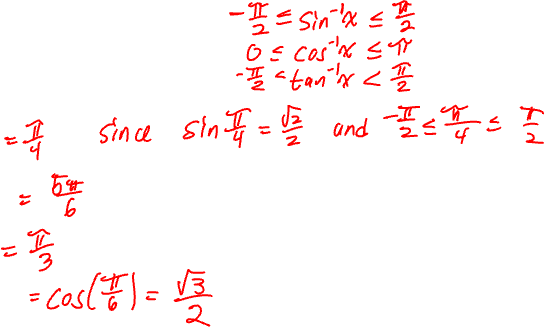 -π/2 ≤ sin⁻¹x ≤ π/2
0 ≤ cos⁻¹x ≤ π
-π/2 < tan⁻¹x < π/2
= π/4 since sin π/4 = √2/2 and -π/2 ≤ π/4 ≤ π/2
= 5π/6
= π/3
= cos(π/6) = √3/2